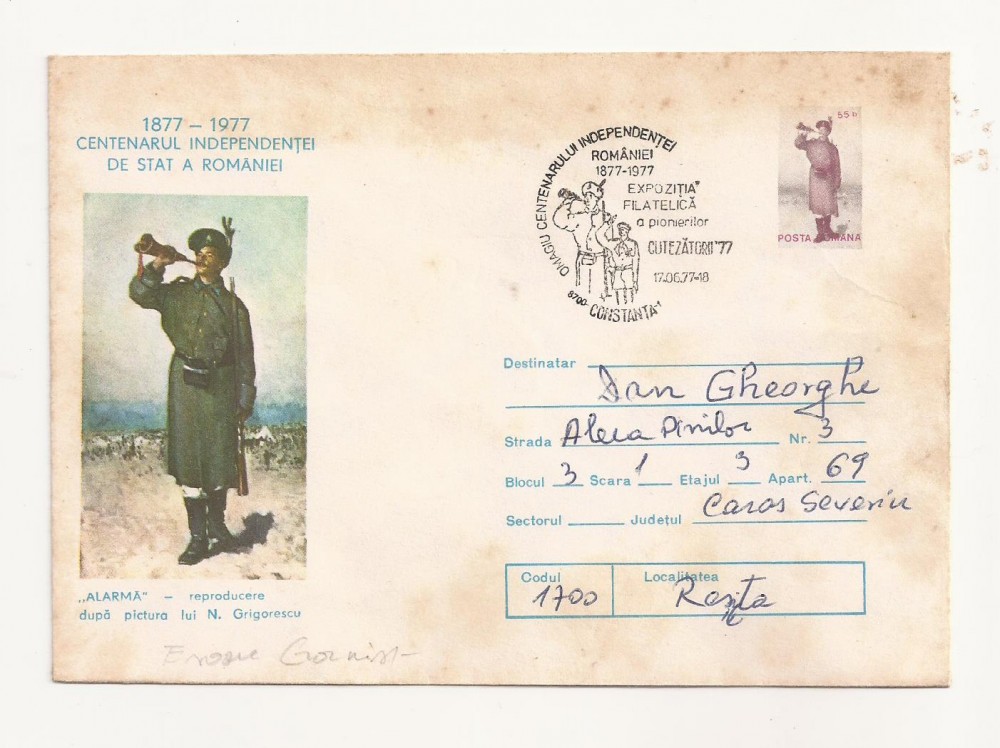 1877 – 1977
CENTENARUL INDEPENDENȚEI
DE STAT A ROMÂNIEI
„ALARMĂ" – reproducere
după pictura lui N. Grigorescu
OMAGIU CENTENARULUI INDEPENDENȚEI
ROMÂNIEI
1877-1977
EXPOZIȚIA
FILATELICĂ
a pionierilor
CUTEZĂTORII '77
17.06.77-18
8700- CONSTANȚA-1
55 b
POSTA ROMANA
Destinatar
Dan Gheorghe
Strada Aleea Pinilor Nr. 3
Blocul 3 Scara 1 Etajul 3 Apart. 69
Sectorul Județul Caras Severin
Codul 1700 Localitatea Reșița